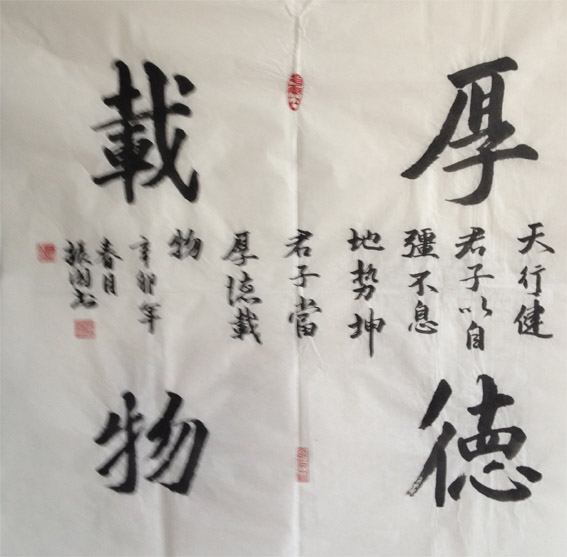 厚德
載物
天行健
君子以自
彊不息
地势坤
君子當
厚德載
物
辛卯年
春月
振
书